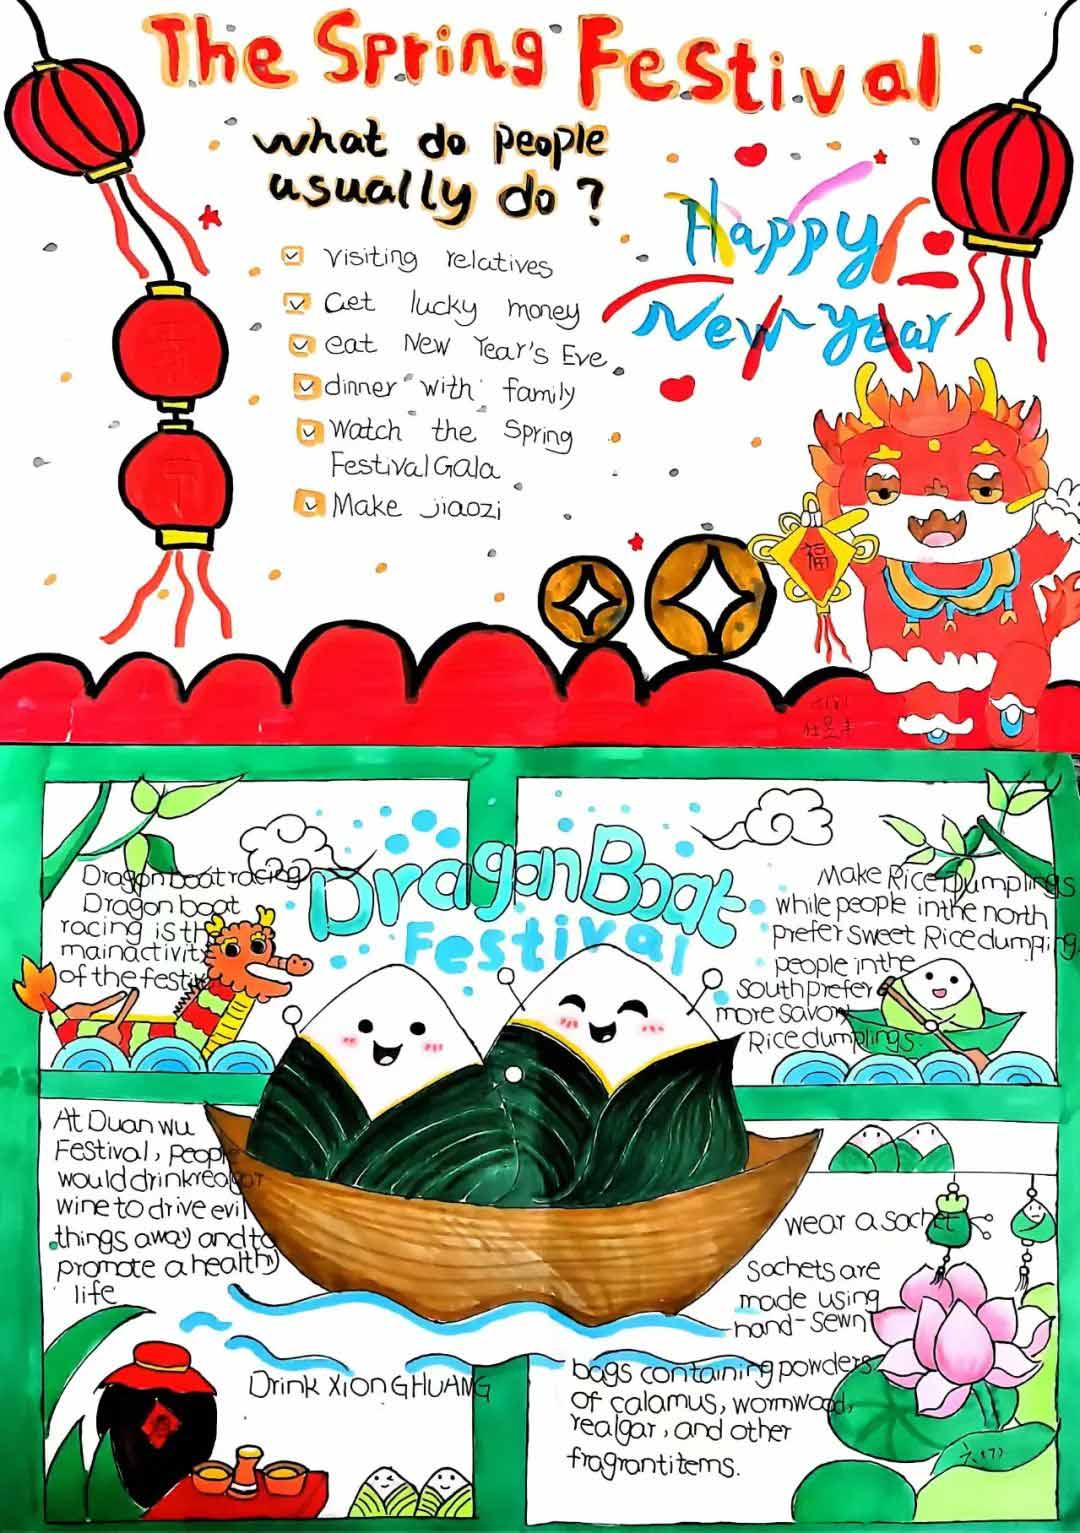 The Spring Festival
what do people
usually do ?
Happy
New Year
visiting relatives
Get lucky money
eat New Year's Eve
dinner with family
Watch the Spring
Festival Gala
Make jiaozi
福
Dragon Boat
Festival
Dragon boat racing
Dragon boat
racing is th
main activit
of the festiv
Make Rice Dumplings
while people in the north
prefer sweet Rice dumping
people in the
south prefer
more savor
Rice dumplings.
At Duan wu
Festival, People
would drink realgar
wine to drive evil
things away and to
promote a healthy
life
Drink XIONG HUANG
wear a sachet
Sachets are
made using
hand-sewn
bags containing powders
of calamus, wormwood,
realgar, and other
fragrant items.